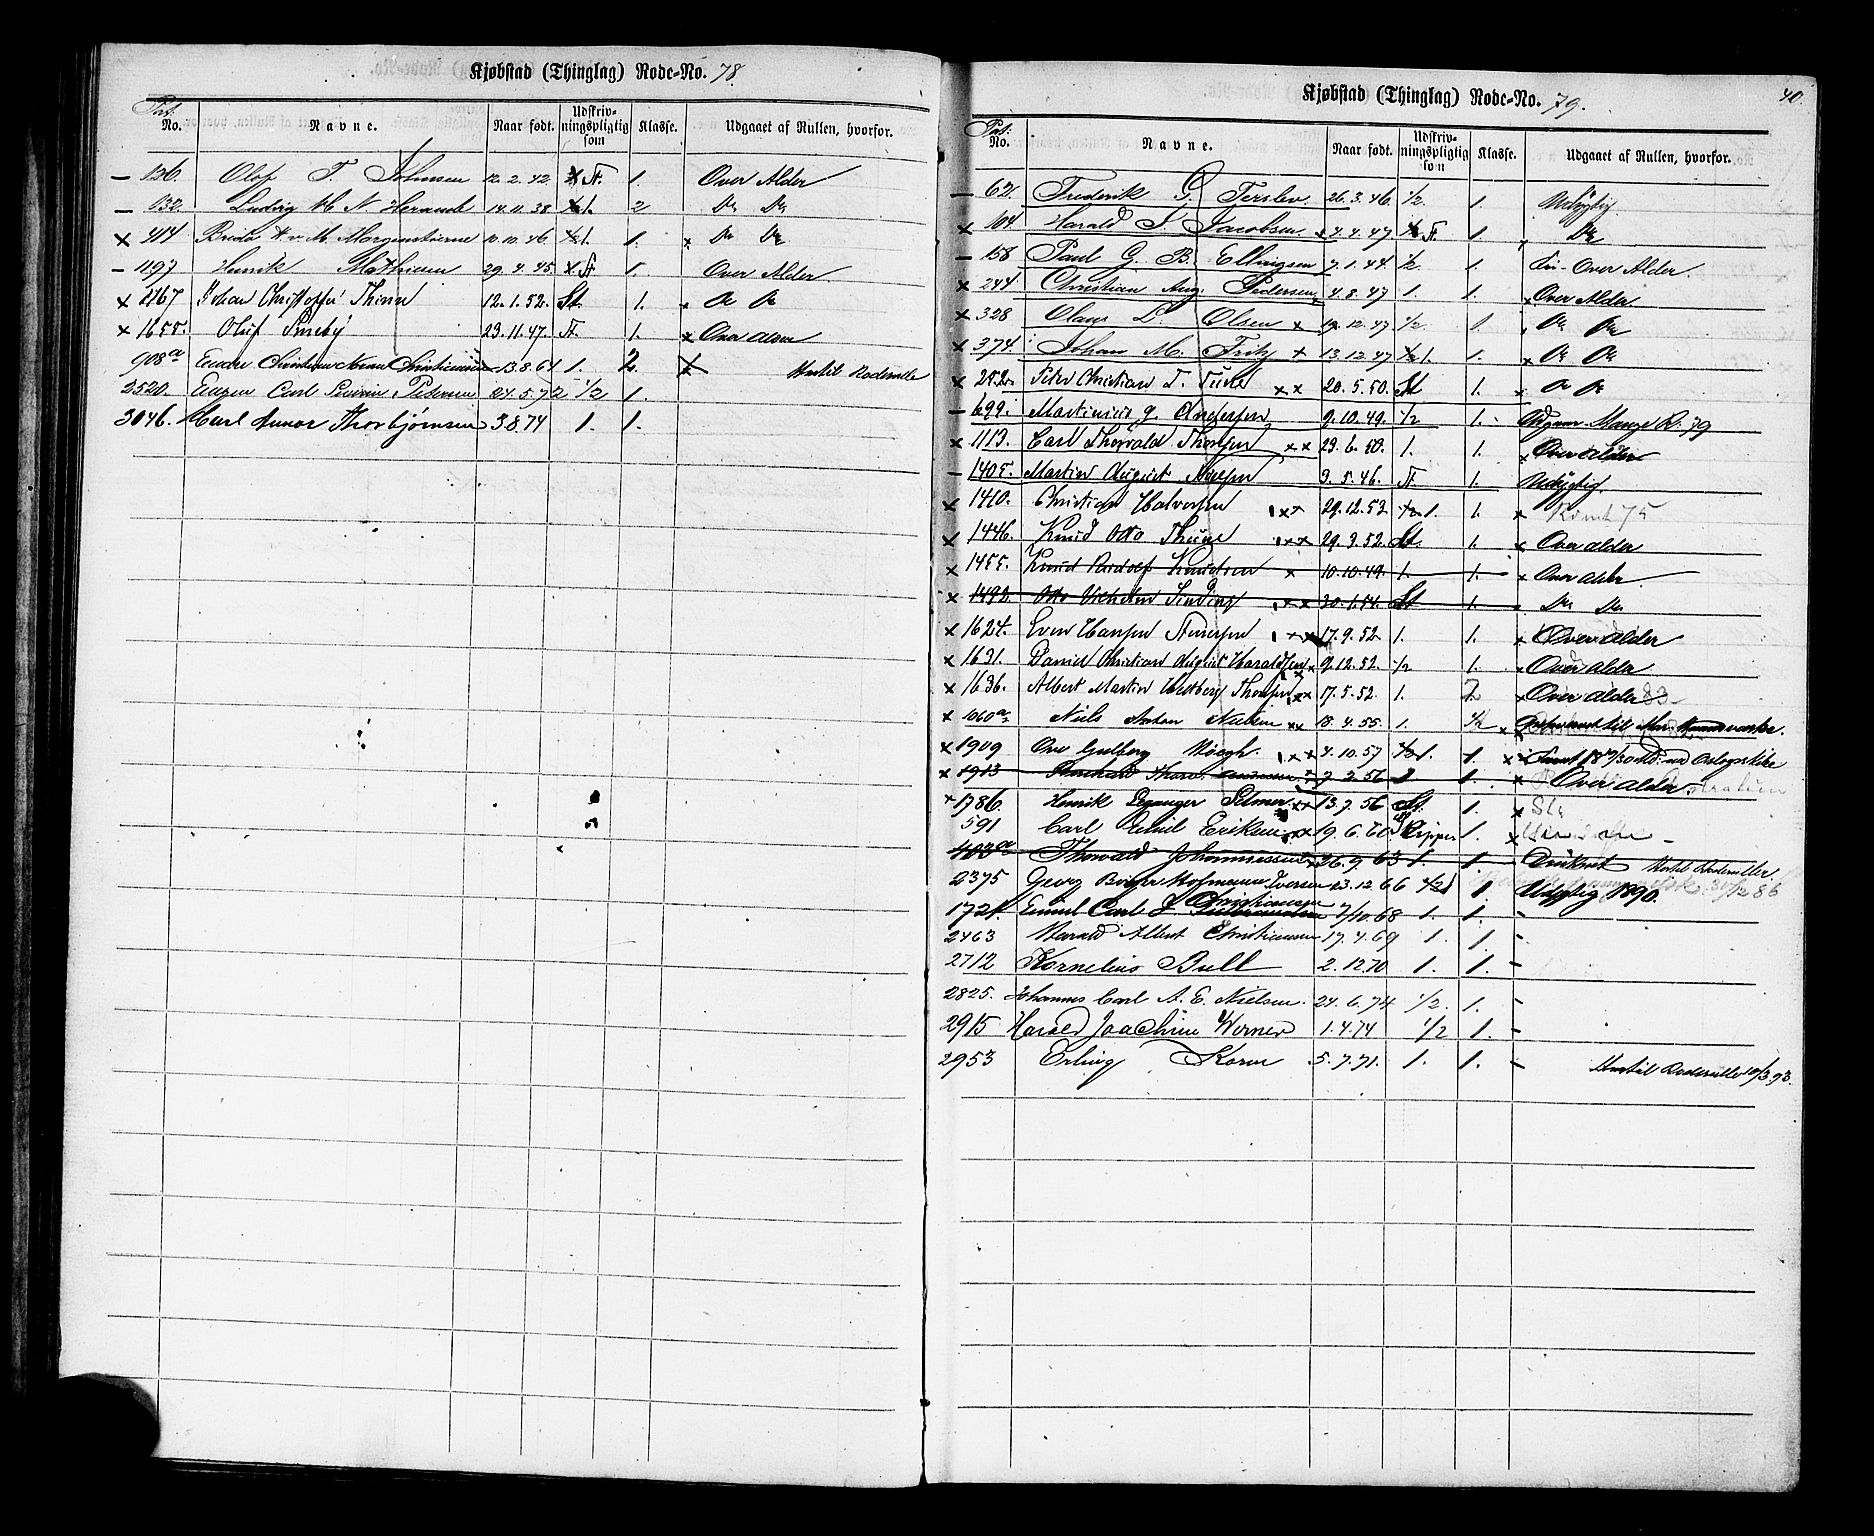 Kjøbstad (Thinglag) Rode-No. 78
Pat. No. Navne. Naar født. Udskrivningspligtig som Klasse. Udgaaet af Rullen, hvorfor.
– 136. Olaf T. Johnsen 12.2.42 St. 1. Over Alder
– 132. Ludvig M N. 14.11.38 1. 2 Do Do
x 414 M. Morgenstierne 10.10.46 1. 1. Do Do
– 1197 Henrik Mathisen 29.4.45. St 1. Over Alder
x 1167 Johan Christoffer Thinn 12.1.52. St. 1. x Do Do
x 1655. Oluf 23.11.47. St. 1. x Over alder
908a Christian 13.8.64 1. 2. x Roderulle
2520. Eugen Carl Severin Pedersen 24.5.72 1/2 1.
3046. Karl Gunar Thorbjørnsen 3.8.74 1. 1.
Kjøbstad (Thinglag) Rode-No. 79. 40.
Pat. No. Navne. Naar født. Udskrivningspligtig som Klasse. Udgaaet af Rullen, hvorfor.
– 62. Frederik G. Terslev. 26.3.46. 1/2. 1. Udygtig
x 104 Harald S. Jacobsen 4.4.47 St. 1. Do
– 158 Paul G. B. Ellingsen 7.1.44. 1/2. 1. Over Alder
x 244 Christian Aug. Pedersen 4.8.47 1. 1. x Over Alder
x 328 Olaus L. Olsen x 19.12.47 1/2 1. Do Do
x 374. Johan M. Fritz x 13.12.47 1/2 1. 1. x Do Do
x 252. Peter Christian T. x x 20.5.50. St 1. x Do Do
– 699. Martinius G. Andersen 9.10.49. 1/2 1. R. 79
x 1113. Carl Thorvald Thorsen x x 23.6.50. 1. 1. x Over alder
– 1405. Martin August Nielsen 3.5.46. St. 1. Udygtig.
x 1410. Christian Halvorsen x x 29.12.52 1/2 1. 1. x 75
x 1446. Knud Otto Thune x x 29.3.52. St. 1. x Over alder
x 1455. Knud Rudolf Knudsen x 10.10.49. 1. 1. x Over alder
x 1492. Otto Vilhelm Sinding x x 30.1.54. St 1. x Do Do
x 1624. Even Hansen x x 17.9.52. 1. 1. x Over alder
x 1631. Daniel Christian August Haraldsen x 9.12.52. 1/2 1. x Over alder
x 1636. Albert Martin Westberg Thorsen x x 17.5.52. 1. 2 x Over alder 83
x 1060a. Niels Anton Nielsen x x 18.4.55. 1. 1/2 x til
x 1909 Ove Guldberg Høegh. x x 4.10.57 1/2 1. 1. x
x 1913 7.2.56 1 1. x Over alder.
x 1786. Henrik Selmer x x 13.7.56 St. 1. x
591 Carl Emil Eriksen x 19.6.60 1. x
403a Thorvald Johannessen 26.9.63 1. 1. Druknet
2375 Georg Hofmann Iversen 23.12.66 1/2 1 1. Udygtig 1890. 31/12 86
1721. Emil Carl J. Christiansen 7/10.68 1. 1. –
2463 Harald Albert Christiansen 17.4.69 1. 1. –
2712 Kornelius Bull 2.12.70 1. 1. –
2825. Johannes Carl A. E. Nielsen. 24.6.74 1/2. 1. –
2915 Harald Joachim Werner 1.4.74 1/2 1. –
2953 Erling Korn 5.7.71. 1. 1. – Roderulle 10/3.93.